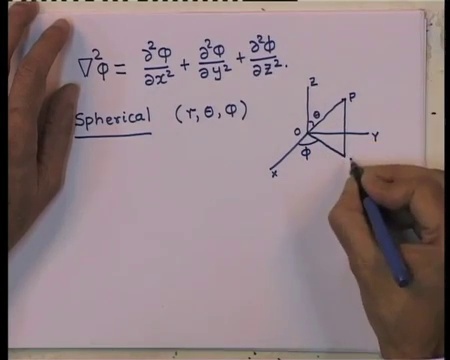 ∇²φ = ∂²φ/∂x² + ∂²φ/∂y² + ∂²φ/∂z².
Spherical (r, θ, φ)
Z
P
θ
O
Y
φ
X